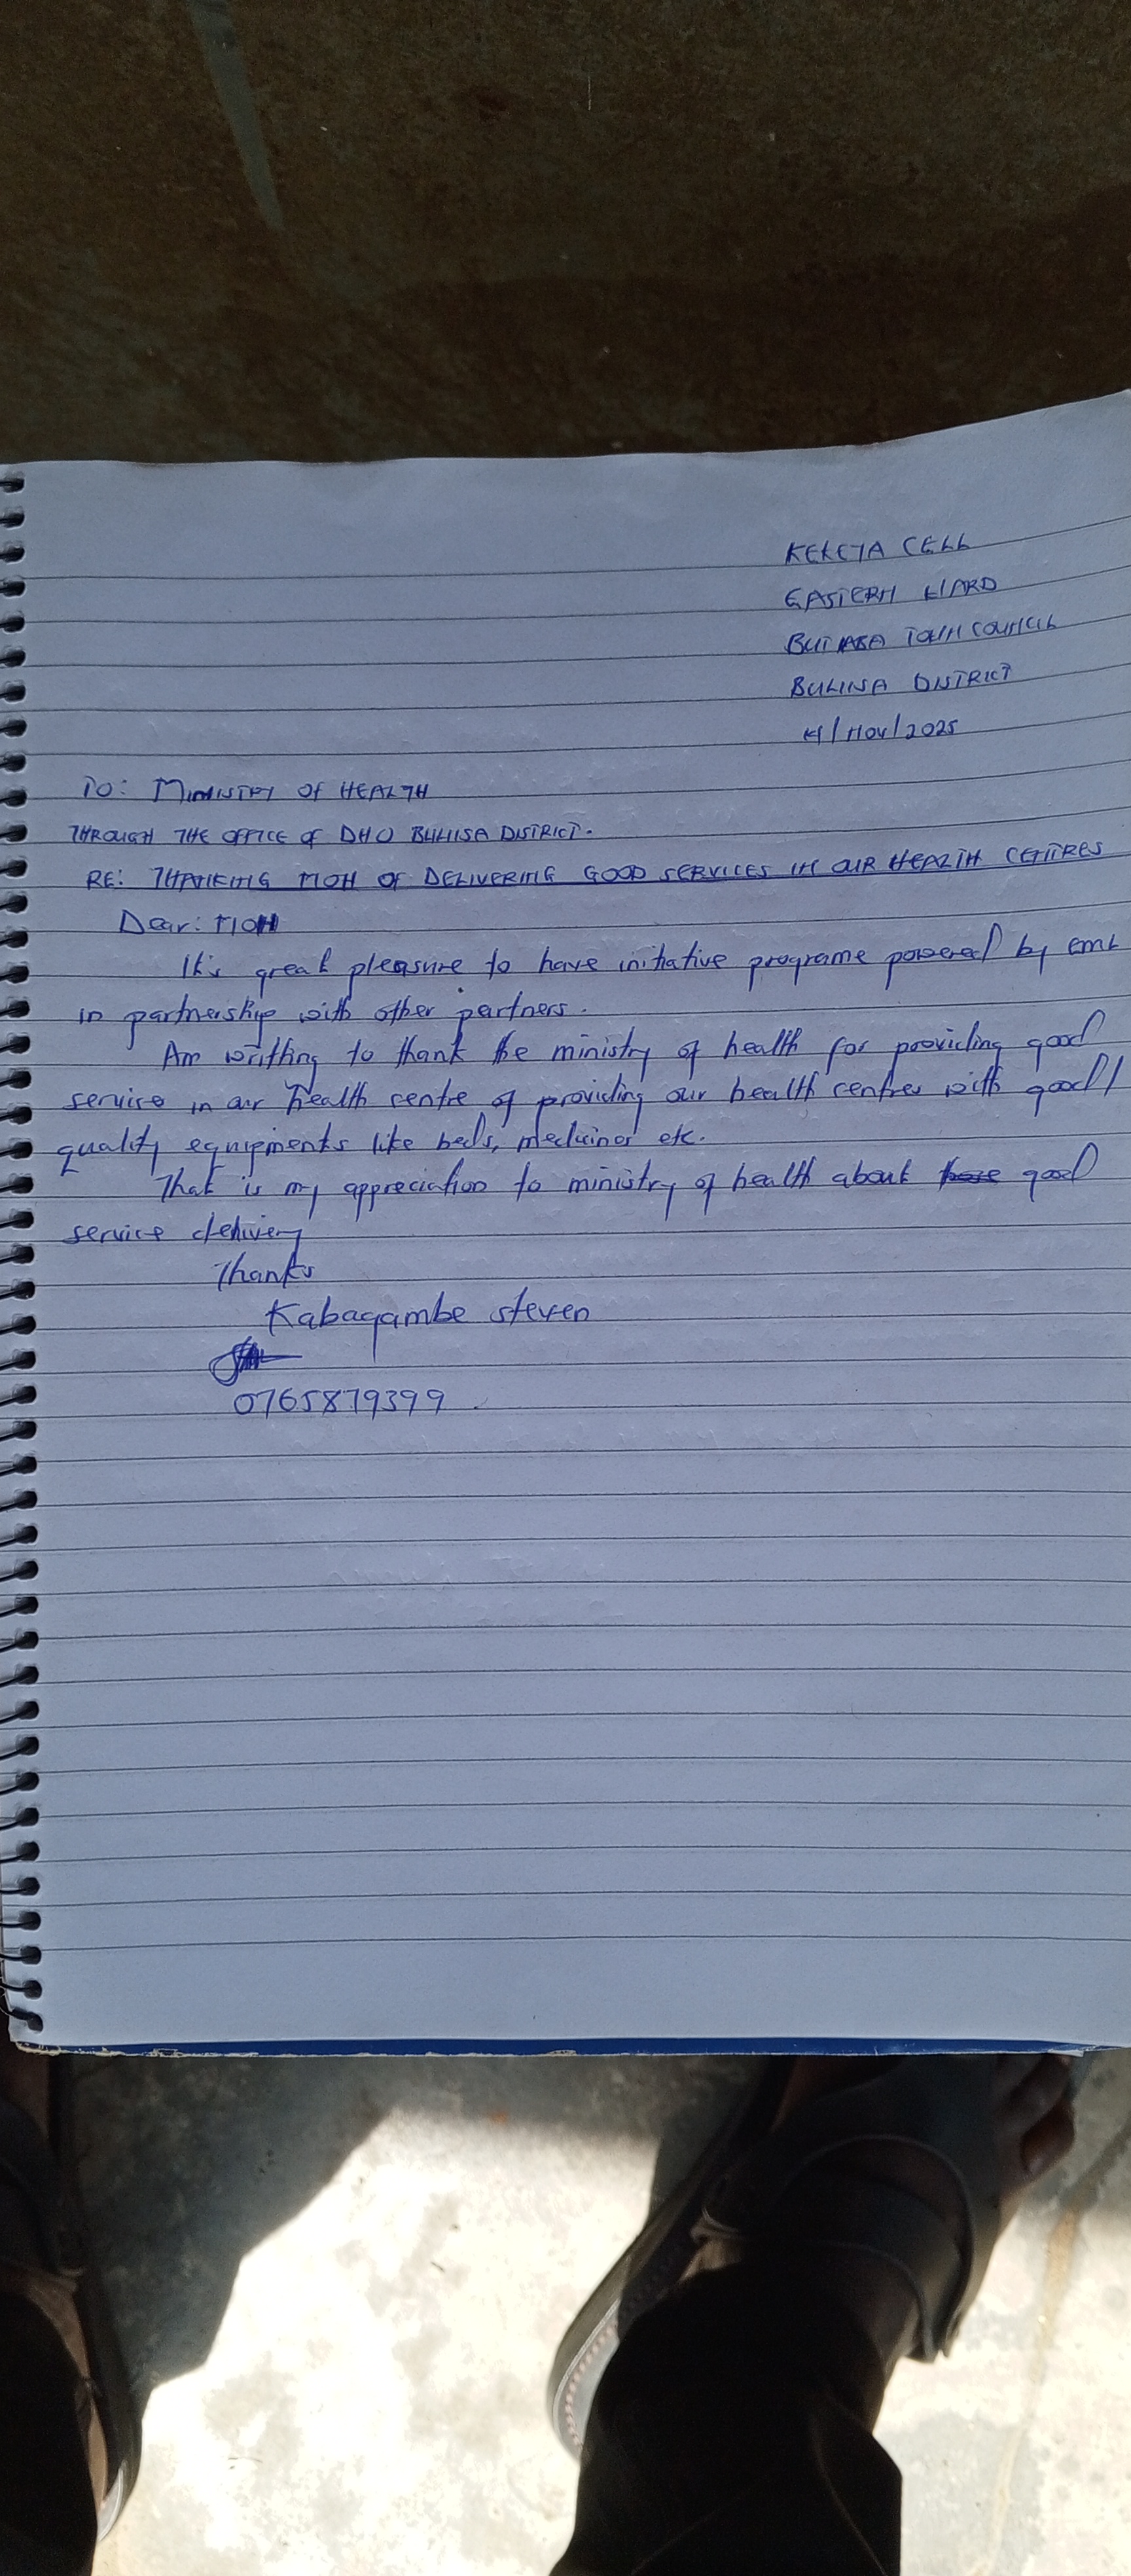 KEKEYA CELL
EASTERN WARD
BUTIABA TOWN COUNCIL
BULIISA DISTRICT
/NOV/2025
TO: MINISTRY OF HEALTH
THROUGH THE OFFICE OF DHO BULIISA DISTRICT.
RE: THANKING MOH OF DELIVERING GOOD SERVICES IN OUR HEALTH CENTRES
Dear: MOH
It's great pleasure to have initiative programe powered by
in partnership with other partners.
Am writting to thank the ministry of health for providing good
service in our health centre of providing our health centres with good
quality equipments like beds, medicines etc.
That is my appreciation to ministry of health about good
service delivery
Thanks
Kabagambe steven
0765879399